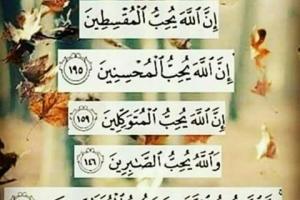 إِنَّ ٱللَّهَ يُحِبُّ ٱلْمُقْسِطِينَ
إِنَّ ٱللَّهَ يُحِبُّ ٱلْمُحْسِنِينَ ١٩٥
إِنَّ ٱللَّهَ يُحِبُّ ٱلْمُتَوَكِّلِينَ ١٥٩
وَٱللَّهُ يُحِبُّ ٱلصَّـٰبِرِينَ ١٤٦